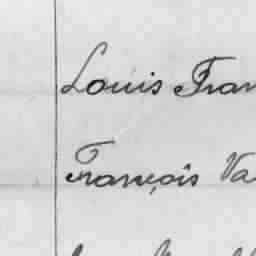 Louis Fran
François Va